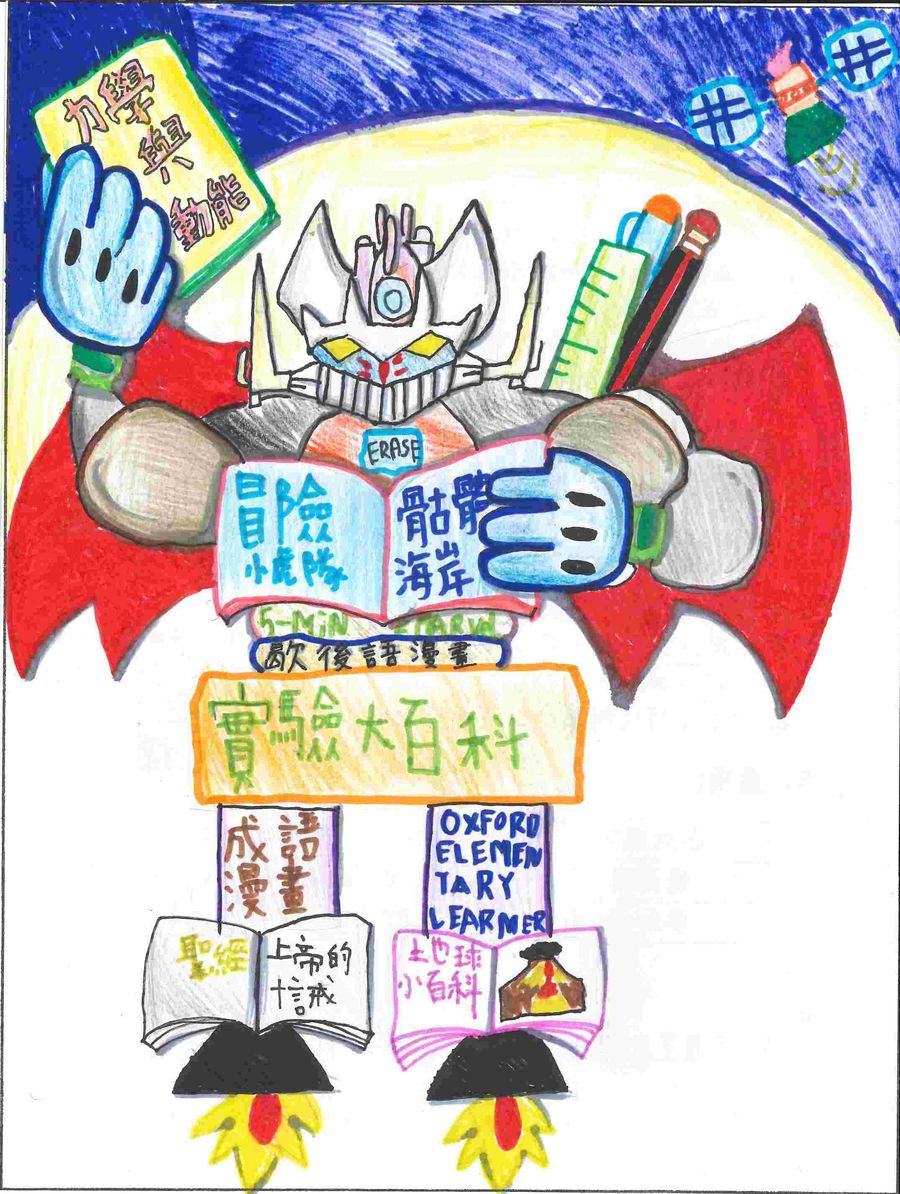 力學
與
動能
ERASE
冒險
小虎隊
骷髏
海岸
5-MiN
歇後語漫畫
實驗大百科
成語
漫畫
OXFORD
ELEMEN
TARY
LEARNER
聖經
上帝的
十誡
土也球
小百科